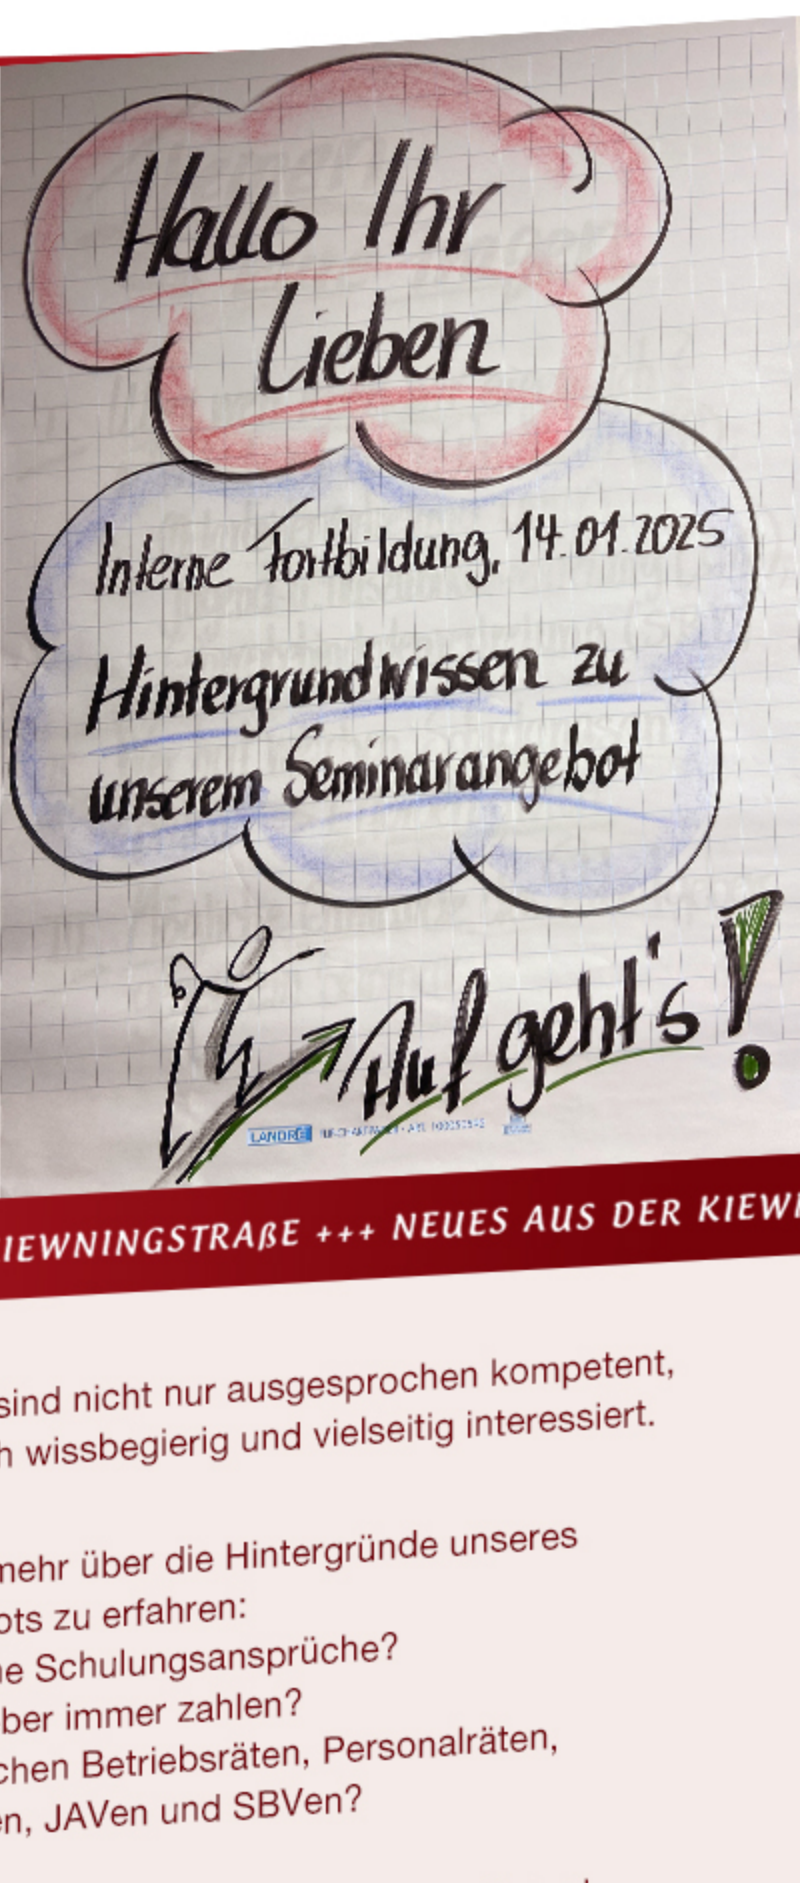 Hallo Ihr
Lieben
Interne Fortbildung, 14.01.2025
Hintergrundwissen zu
unserem Seminarangebot
Auf geht's!
LANDRÉ
IEWNINGSTRAßE +++ NEUES AUS DER KIEWN
sind nicht nur ausgesprochen kompetent,
h wissbegierig und vielseitig interessiert.
mehr über die Hintergründe unseres
ots zu erfahren:
ne Schulungsansprüche?
ber immer zahlen?
chen Betriebsräten, Personalräten,
en, JAVen und SBVen?